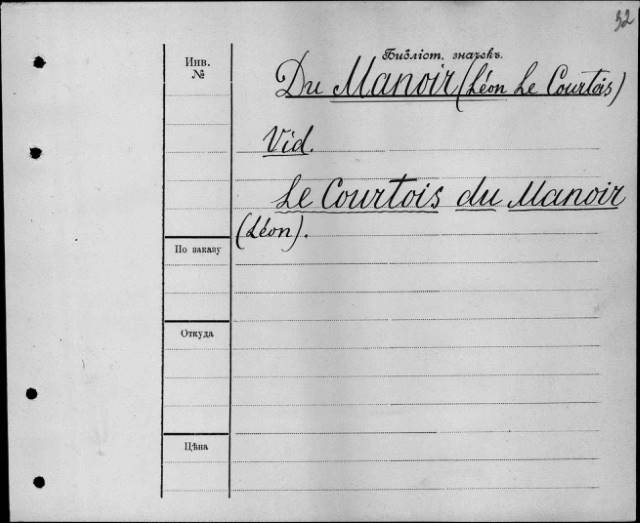 32
Библіот. значекъ.
Инв.
№
Du Manoir (Léon Le Courtois)
Vid.
Le Courtois du Manoir
(Léon).
По заказу
Откуда
Цѣна